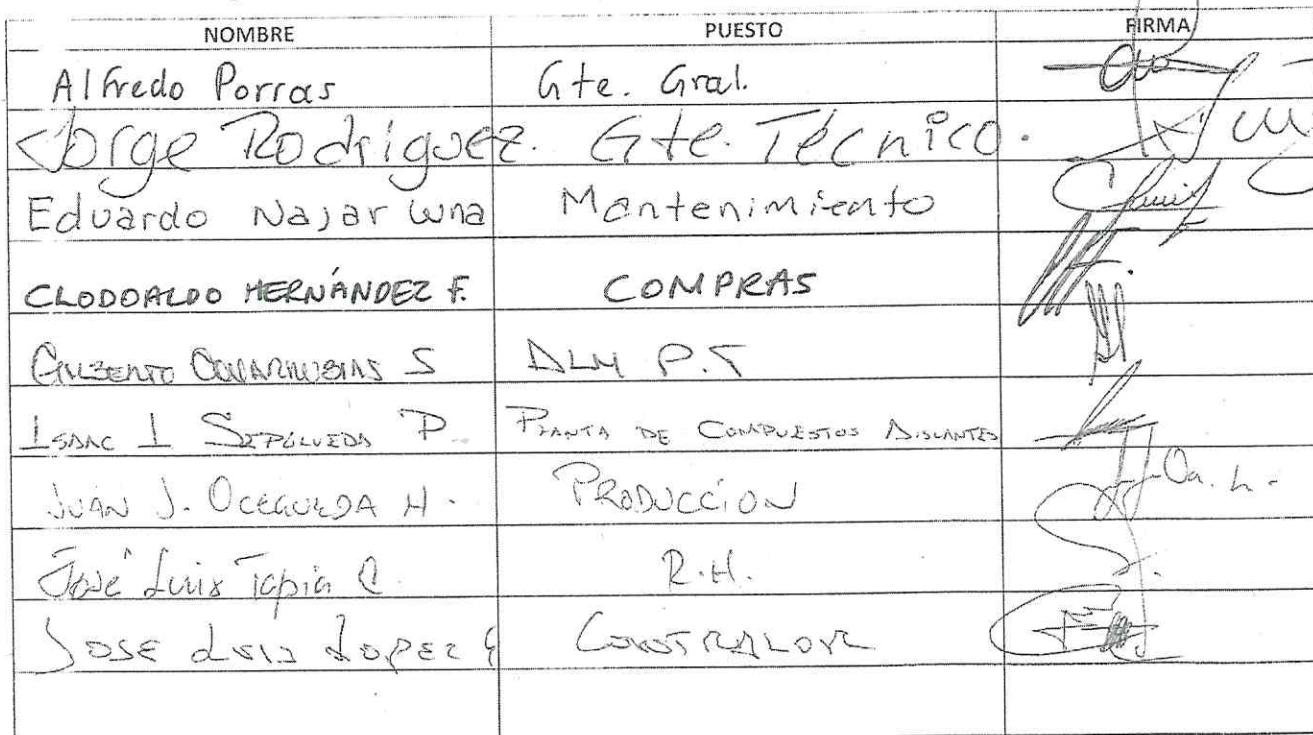 NOMBRE PUESTO FIRMA
Alfredo Porras Gte. Gral.
Jorge Rodriguez. Gte. Técnico.
Eduardo Najar Luna Mantenimiento
CLODOALDO HERNÁNDEZ F. COMPRAS
GILBERTO COVARRUBIAS S ALM P.T
ISAAC I SEPÚLVEDA P. PLANTA DE COMPUESTOS AISLANTES
JUAN J. OCEGUEDA H. PRODUCCIÓN
José Luis Tapia C. R.H.
JOSE LUIS LOPEZ G CONTRALOR